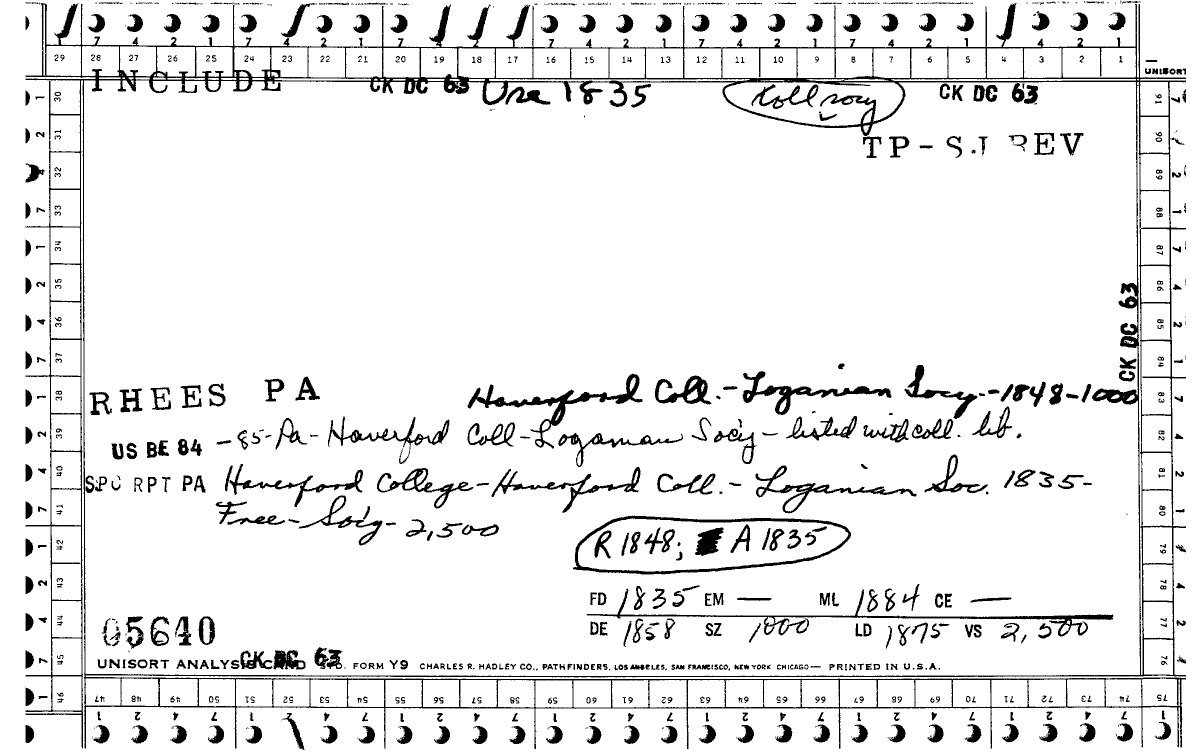 1 7 4 2 1 7 4 2 1 7 4 2 1 7 4 2 1 7 4 2 1 7 4 2 1 7 4 2 1
29 28 27 26 25 24 23 22 21 20 19 18 17 16 15 14 13 12 11 10 9 8 7 6 5 4 3 2 1
UNISORT
INCLUDE CK DC 63 Use 1835 Coll socy CK DC 63
TP-SJ REV
CK DC 63
RHEES PA Haverford Coll.-Loganian Socy.-1848-1000
US BE 84 -85-Pa-Haverford Coll-Loganian Soc'y-listed with coll. lib.
SPC RPT PA Haverford College-Haverford Coll.-Loganian Soc. 1835-
Free-Soc'y-2,500
R 1848; A 1835
FD 1835 EM — ML 1884 CE —
DE 1858 SZ 1000 LD 1875 VS 2,500
05640
UNISORT ANALYSIS CARD STD. FORM Y9 CHARLES R. HADLEY CO., PATHFINDERS, LOS ANGELES, SAN FRANCISCO, NEW YORK CHICAGO— PRINTED IN U.S.A.
CK DC 63
46 47 48 49 50 51 52 53 54 55 56 57 58 59 60 61 62 63 64 65 66 67 68 69 70 71 72 73 74 75